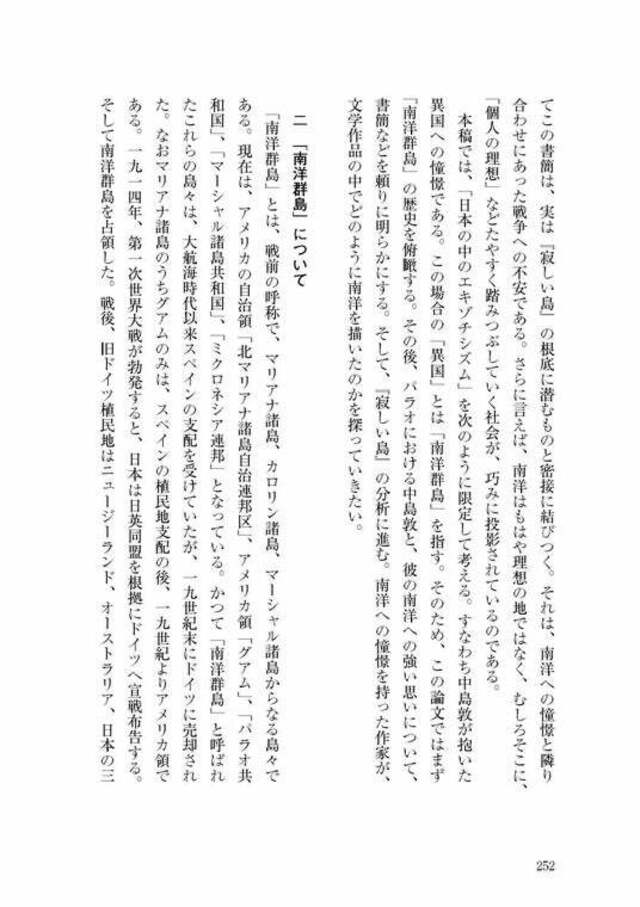 てこの書簡は、実は『寂しい島』の根底に潜むものと密接に結びつく。それは、南洋への憧憬と隣り
合わせにあった戦争への不安である。さらに言えば、南洋はもはや理想の地ではなく、むしろそこに、
「個人の理想」などたやすく踏みつぶしていく社会が、巧みに投影されているのである。
本稿では、「日本の中のエキゾチシズム」を次のように限定して考える。すなわち中島敦が抱いた
異国への憧憬である。この場合の「異国」とは「南洋群島」を指す。そのため、この論文ではまず
「南洋群島」の歴史を俯瞰する。その後、パラオにおける中島敦と、彼の南洋への強い思いについて、
書簡などを頼りに明らかにする。そして、『寂しい島』の分析に進む。南洋への憧憬を持った作家が、
文学作品の中でどのように南洋を描いたのかを探っていきたい。
二 「南洋群島」について
「南洋群島」とは、戦前の呼称で、マリアナ諸島、カロリン諸島、マーシャル諸島からなる島々で
ある。現在は、アメリカの自治領「北マリアナ諸島自治連邦区」、アメリカ領「グアム」、「パラオ共
和国」、「マーシャル諸島共和国」、「ミクロネシア連邦」となっている。かつて「南洋群島」と呼ばれ
たこれらの島々は、大航海時代以来スペインの支配を受けていたが、一九世紀末にドイツに売却され
た。なおマリアナ諸島のうちグアムのみは、スペインの植民地支配の後、一九世紀よりアメリカ領で
ある。一九一四年、第一次世界大戦が勃発すると、日本は日英同盟を根拠にドイツへ宣戦布告する。
そして南洋群島を占領した。戦後、旧ドイツ植民地はニュージーランド、オーストラリア、日本の三
252